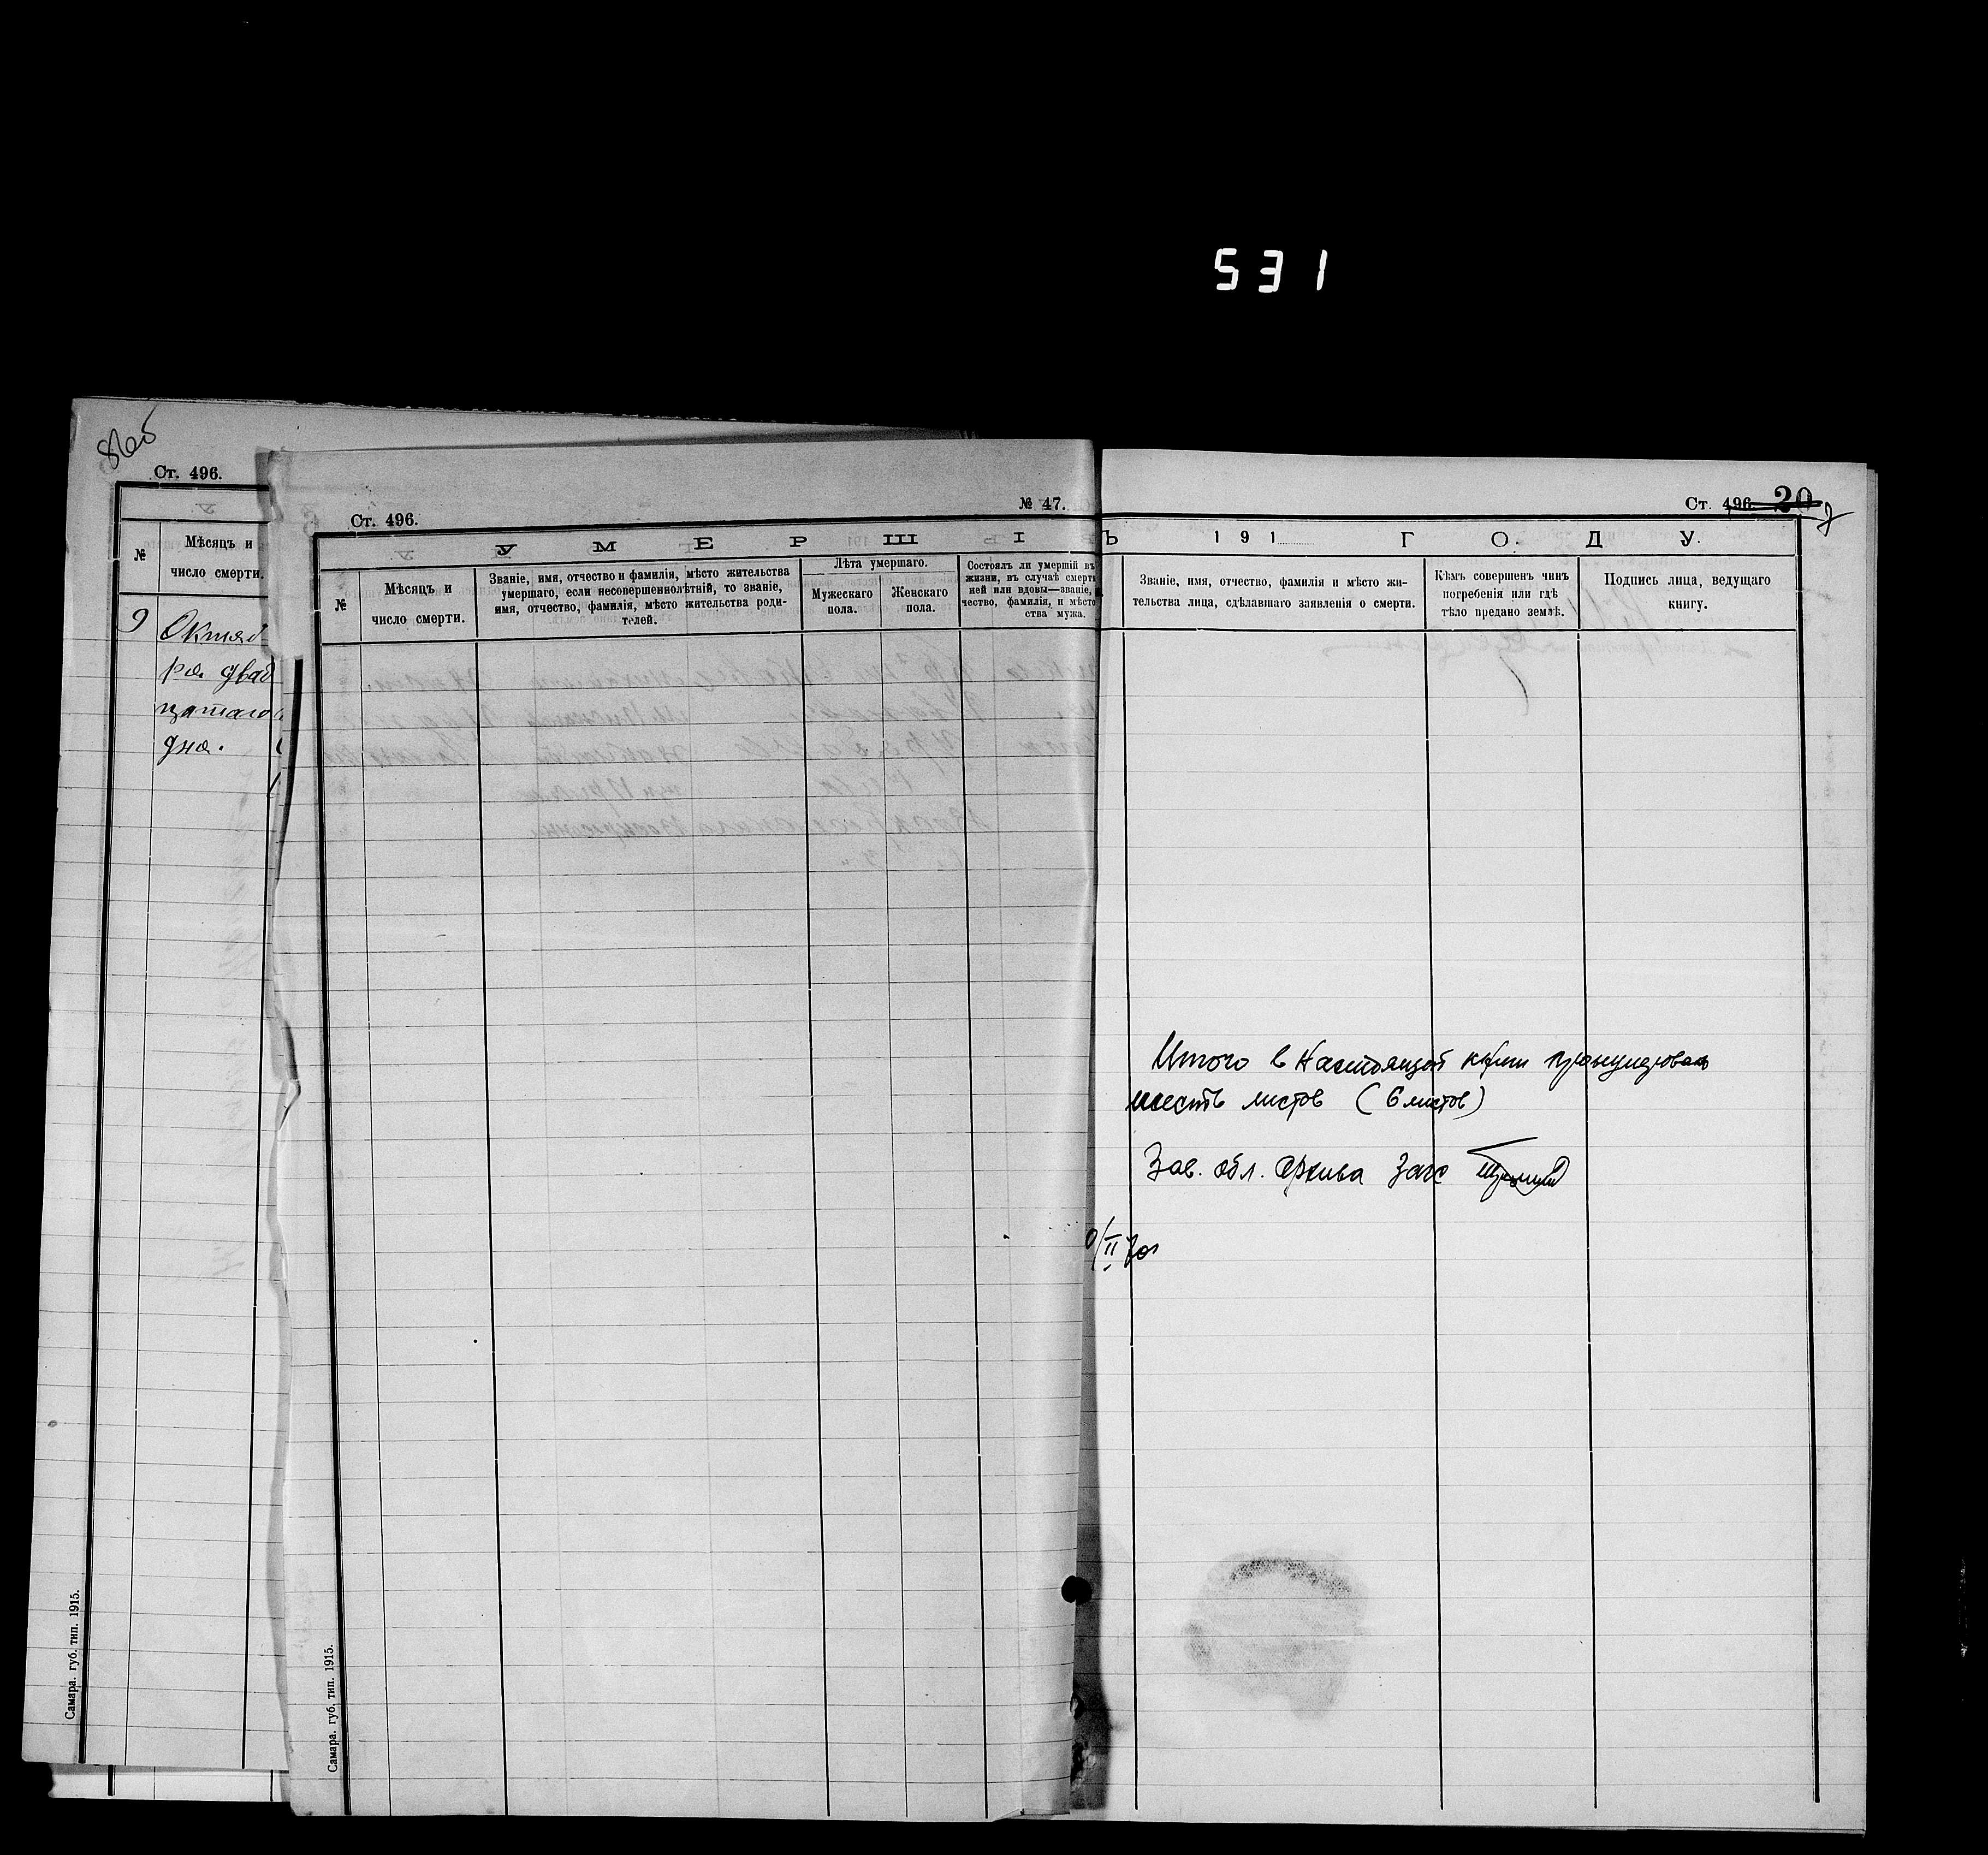 531
86об
Ст. 496.
№
Мѣсяцъ и
число смерти.
9
Октяб
ря двад
цатаго
дня.
Самара. губ. тип. 1915.
Ст. 496.
№ 47.
Ст. 496.
20
У М Е Р Ш І
Ъ 191 Г О Д У.
№
Мѣсяцъ и
число смерти.
Званіе, имя, отчество и фамилія, мѣсто жительства
умершаго, если несовершеннолѣтній, то званіе,
имя, отчество, фамилія, мѣсто жительства роди-
телей.
Лѣта умершаго.
Мужескаго
пола.
Женскаго
пола.
Состоялъ ли умершій въ
жизни, въ случаѣ смерти
ней или вдовы—званіе,
чество, фамилія, и мѣсто
ства мужа.
Званіе, имя, отчество, фамилія и мѣсто жи-
тельства лица, сдѣлавшаго заявленія о смерти.
Кѣмъ совершенъ чинъ
погребенія или гдѣ
тѣло предано землѣ.
Подпись лица, ведущаго
книгу.
Итого в настоящей книги
шесть листов (6 листов)
Зав. обл. архива Загс
0/II 70г
Самара. губ. тип. 1915.